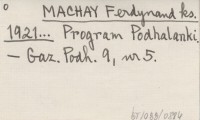 MACHAY Ferdynand ks.
1921... Program Podhalański.
— Gaz. Podh. 9, nr 5.